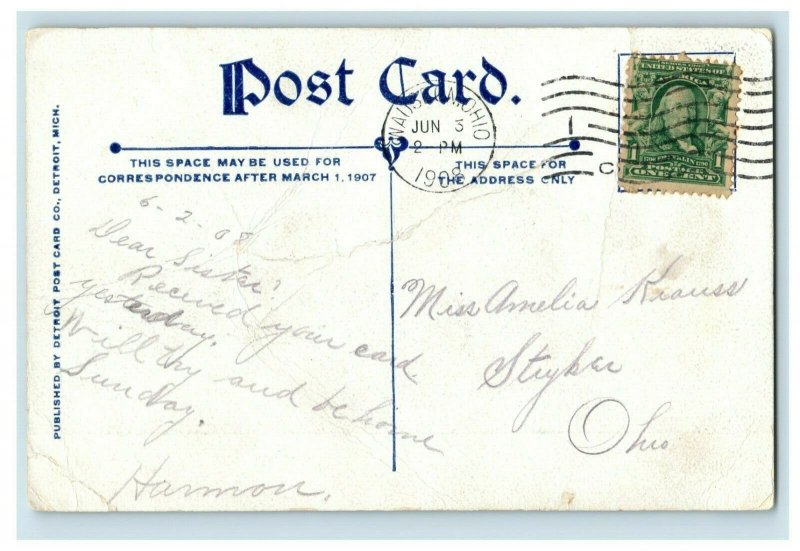 Post Card.
THIS SPACE MAY BE USED FOR
CORRESPONDENCE AFTER MARCH 1, 1907
THIS SPACE FOR
THE ADDRESS ONLY
WAUSEON, OHIO
JUN 3
2 - PM
1908
1
C
SERIES 1902
UNITED STATES OF
AMERICA
1706 FRANKLIN 1790
1 1
ONE CENT
PUBLISHED BY DETROIT POST CARD CO., DETROIT, MICH.
6-2-08
Dear Sister:
Received your card
yesterday.
Will try and be home
Sunday.
Harmon.
Miss Amelia Krauss
Stryker
Ohio